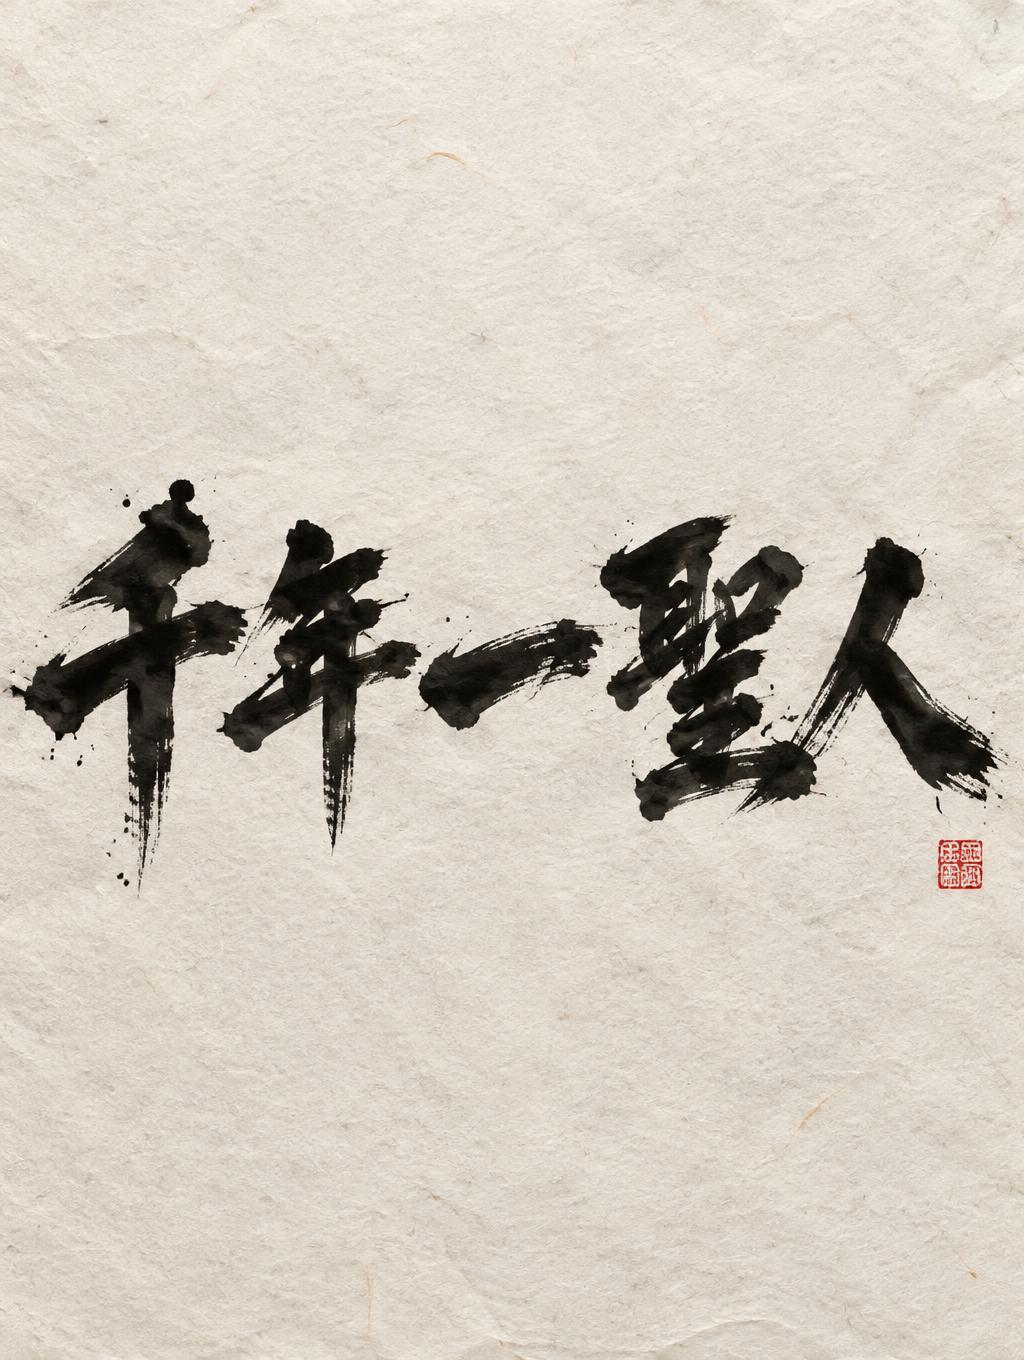 千年一聖人